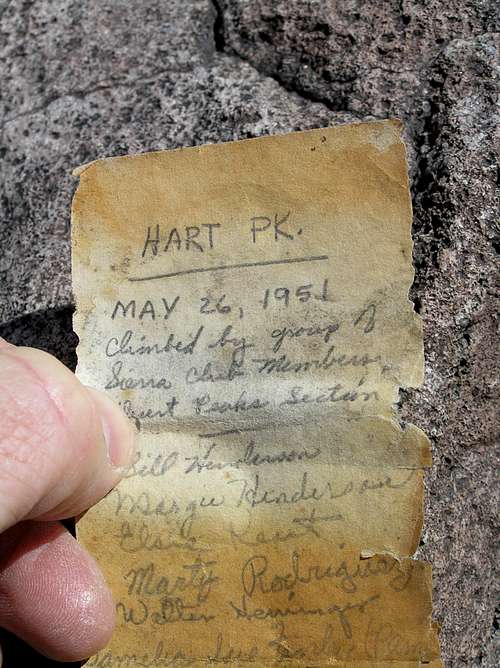 HART PK.
MAY 26, 1951
Climbed by group of
Sierra Club Members,
Peaks Section
Bill Henderson
Margie Henderson
Elsie
Marty Rodriguez
Walter
Sue